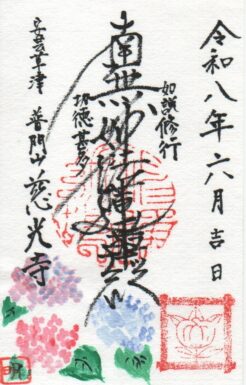 令和八年六月吉日
如説修行
南無妙法蓮華経
功徳甚多
安芸草津 普門山 慈光寺